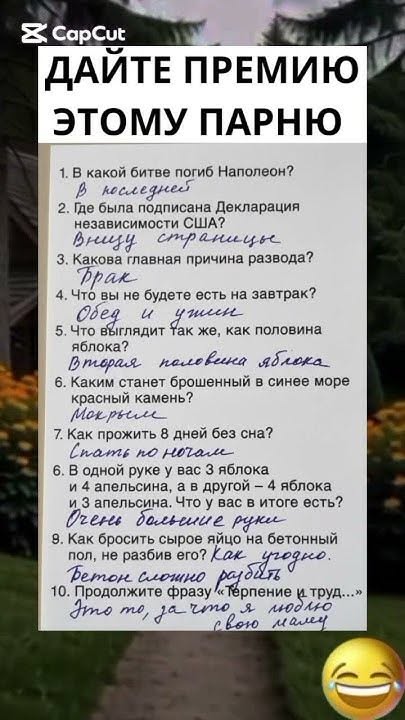 CapCut
ДАЙТЕ ПРЕМИЮ
ЭТОМУ ПАРНЮ
1. В какой битве погиб Наполеон?
В последней
2. Где была подписана Декларация
независимости США?
Внизу страницы
3. Какова главная причина развода?
Брак
4. Что вы не будете есть на завтрак?
Обед и ужин
5. Что выглядит так же, как половина
яблока?
Вторая половина яблока
6. Каким станет брошенный в синее море
красный камень?
Мокрым
7. Как прожить 8 дней без сна?
Спать по ночам
6. В одной руке у вас 3 яблока
и 4 апельсина, а в другой – 4 яблока
и 3 апельсина. Что у вас в итоге есть?
Очень большие руки
9. Как бросить сырое яйцо на бетонный
пол, не разбив его? Как угодно.
Бетон сложно разбить
10. Продолжите фразу «Терпение и труд...»
Это то, за что я люблю
свою маму